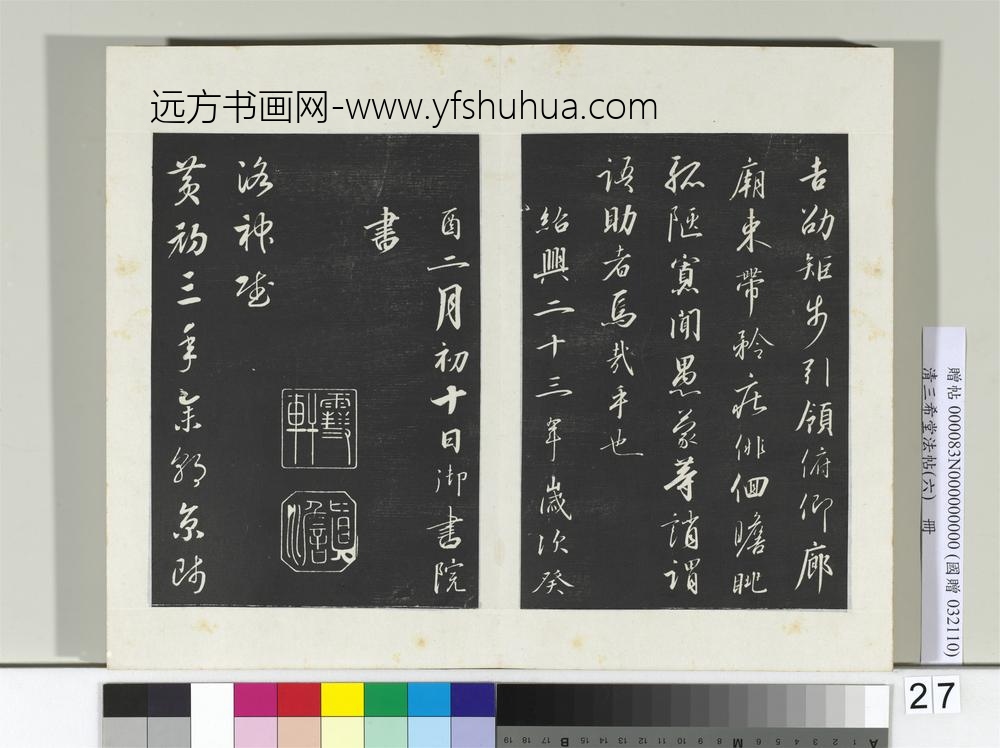 远方书画网-www.yfshuhua.com
吉劭矩步引領俯仰廊
廟束帶矜莊徘徊瞻眺
孤陋寡聞愚蒙等誚謂
語助者焉哉乎也
紹興二十三年歲次癸
酉二月初十日御書院
書
洛神賦
黃初三年余朝京師
贈帖 000083N000000000 (國贈 032110)
清三希堂法帖(六) 冊
27